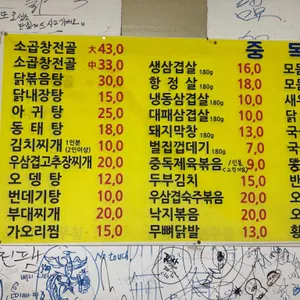 소곱창전골 大 43,0
소곱창전골 中 33,0
닭볶음탕 30,0
닭내장탕 15,0
아귀탕 25,0
동태탕 18,0
김치찌개 1인분 (2인이상) 10,0
우삼겹고추장찌개 20,0
오뎅탕 12,0
번데기탕 10,0
부대찌개 20,0
가오리찜 15,0
중
생삼겹살 180g 16,0
항정살 180g 18,0
냉동삼겹살 180g 13,0
대패삼겹살 180g 12,0
돼지막창 180g 13,0
벌집껍데기 180g 10,0
중독제육볶음 9,0
두부김치 15,0
우삼겹숙주볶음 20,0
낙지볶음 20,0
무뼈닭발 13,0
touch